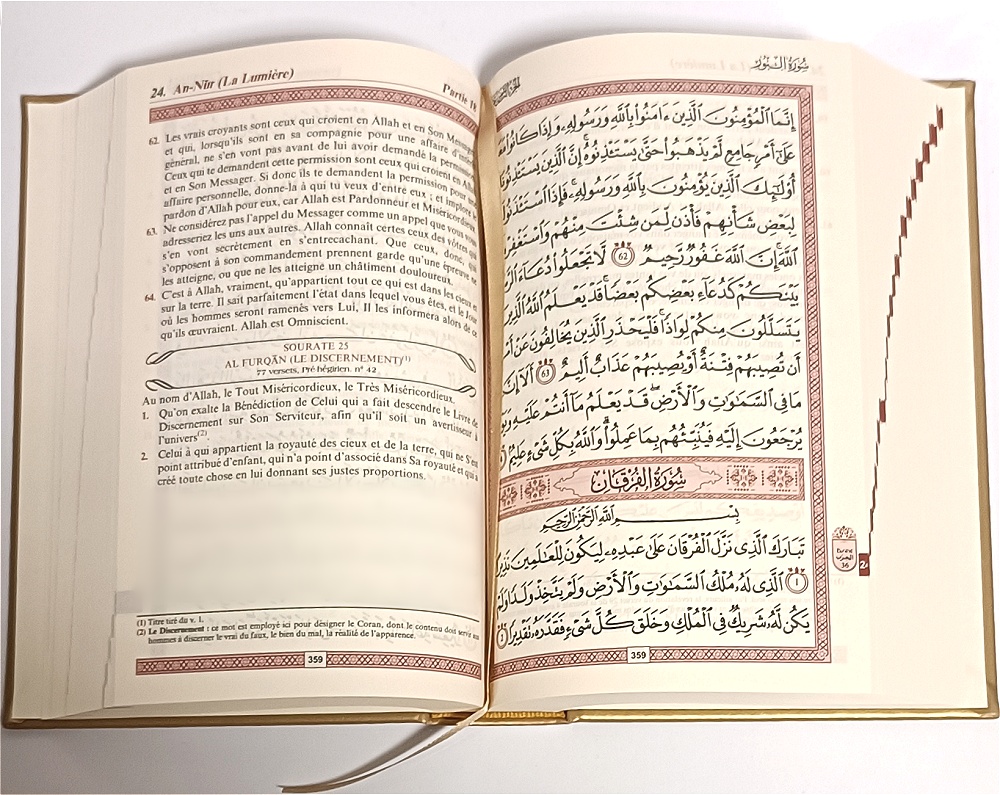 24. An-Nūr (La Lumière)
Partie 18
62. Les vrais croyants sont ceux qui croient en Allah et en Son Messager
et qui, lorsqu'ils sont en sa compagnie pour une affaire d'intérêt
général, ne s'en vont pas avant de lui avoir demandé la permission.
Ceux qui te demandent cette permission sont ceux qui croient en Allah
et en Son Messager. Si donc ils te demandent la permission pour une
affaire personnelle, donne-la à qui tu veux d'entre eux ; et implore le
pardon d'Allah pour eux, car Allah est Pardonneur et Miséricordieux.
63. Ne considérez pas l'appel du Messager comme un appel que vous vous
adresseriez les uns aux autres. Allah connaît certes ceux des vôtres qui
s'en vont secrètement en s'entrecachant. Que ceux, donc, qui
s'opposent à son commandement prennent garde qu'une épreuve ne
les atteigne, ou que ne les atteigne un châtiment douloureux.
64. C'est à Allah, vraiment, qu'appartient tout ce qui est dans les cieux et
sur la terre. Il sait parfaitement l'état dans lequel vous êtes, et le Jour
où les hommes seront ramenés vers Lui, Il les informera alors de ce
qu'ils œuvraient. Allah est Omniscient.
SOURATE 25
AL FURQĀN (LE DISCERNEMENT)(1)
77 versets, Pré-hégirien. n° 42
Au nom d'Allah, le Tout Miséricordieux, le Très Miséricordieux.
1. Qu'on exalte la Bénédiction de Celui qui a fait descendre le Livre de
Discernement sur Son Serviteur, afin qu'il soit un avertisseur à
l'univers(2).
2. Celui à qui appartient la royauté des cieux et de la terre, qui ne S'est
point attribué d'enfant, qui n'a point d'associé dans Sa royauté et qui a
créé toute chose en lui donnant ses justes proportions.
(1) Titre tiré du v. 1.
(2) Le Discernement : ce mot est employé ici pour désigner le Coran, dont le contenu doit servir aux
hommes à discerner le vrai du faux, le bien du mal, la réalité de l'apparence.
359
سُورَةُ النُّورِ
إِنَّمَا الْمُؤْمِنُونَ الَّذِينَ ءَامَنُوا بِاللَّهِ وَرَسُولِهِ وَإِذَا كَانُوا
عَلَىٰ أَمْرٍ جَامِعٍ لَّمْ يَذْهَبُوا حَتَّىٰ يَسْتَـْٔذِنُوهُ إِنَّ الَّذِينَ
أُولَٰٓئِكَ الَّذِينَ يُؤْمِنُونَ بِاللَّهِ وَرَسُولِهِ فَإِذَا
لِبَعْضِ شَأْنِهِمْ فَأْذَن لِّمَن شِئْتَ مِنْهُمْ
اللَّهَ إِنَّ اللَّهَ غَفُورٌ رَّحِيمٌ 62 لَّا تَجْعَلُوا دُعَاءَ
بَيْنَكُمْ كَدُعَاءِ بَعْضِكُم بَعْضًا قَدْ يَعْلَمُ اللَّهُ الَّذِينَ
يَتَسَلَّلُونَ مِنكُمْ لِوَاذًا فَلْيَحْذَرِ الَّذِينَ يُخَالِفُونَ عَنْ
أَن تُصِيبَهُمْ فِتْنَةٌ أَوْ يُصِيبَهُمْ عَذَابٌ أَلِيمٌ 63 أَلَا إِنَّ
مَا فِي السَّمَاوَاتِ وَالْأَرْضِ قَدْ يَعْلَمُ مَا أَنتُمْ عَلَيْهِ
يُرْجَعُونَ إِلَيْهِ فَيُنَبِّئُهُم بِمَا عَمِلُوا وَاللَّهُ بِكُلِّ شَيْءٍ عَلِيمٌ
سُورَةُ الْفُرْقَانِ
بِسْمِ اللَّهِ الرَّحْمَٰنِ الرَّحِيمِ
تَبَارَكَ الَّذِي نَزَّلَ الْفُرْقَانَ عَلَىٰ عَبْدِهِ لِيَكُونَ لِلْعَالَمِينَ
1 الَّذِي لَهُ مُلْكُ السَّمَاوَاتِ وَالْأَرْضِ وَلَمْ يَتَّخِذْ وَلَدًا وَلَمْ
يَكُن لَّهُ شَرِيكٌ فِي الْمُلْكِ وَخَلَقَ كُلَّ شَيْءٍ فَقَدَّرَهُ تَقْدِيرًا
359
الحزب
36